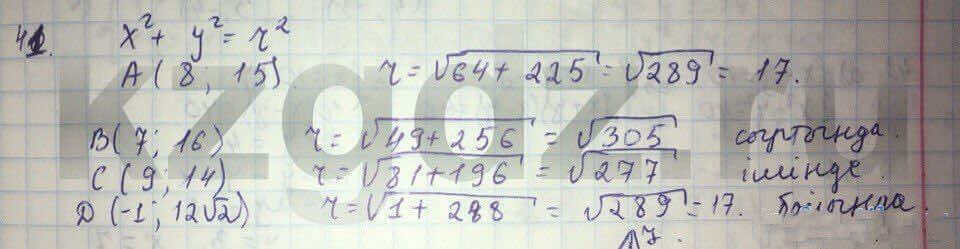 41. x² + y² = r²
A(8, 15) r = √64 + 225 = √289 = 17.
B(7; 16) r = √49 + 256 = √305 сыртында.
C(9; 14) r = √81 + 196 = √277 ішінде.
D(-1; 12√2) r = √1 + 288 = √289 = 17.
kzgdz.ru